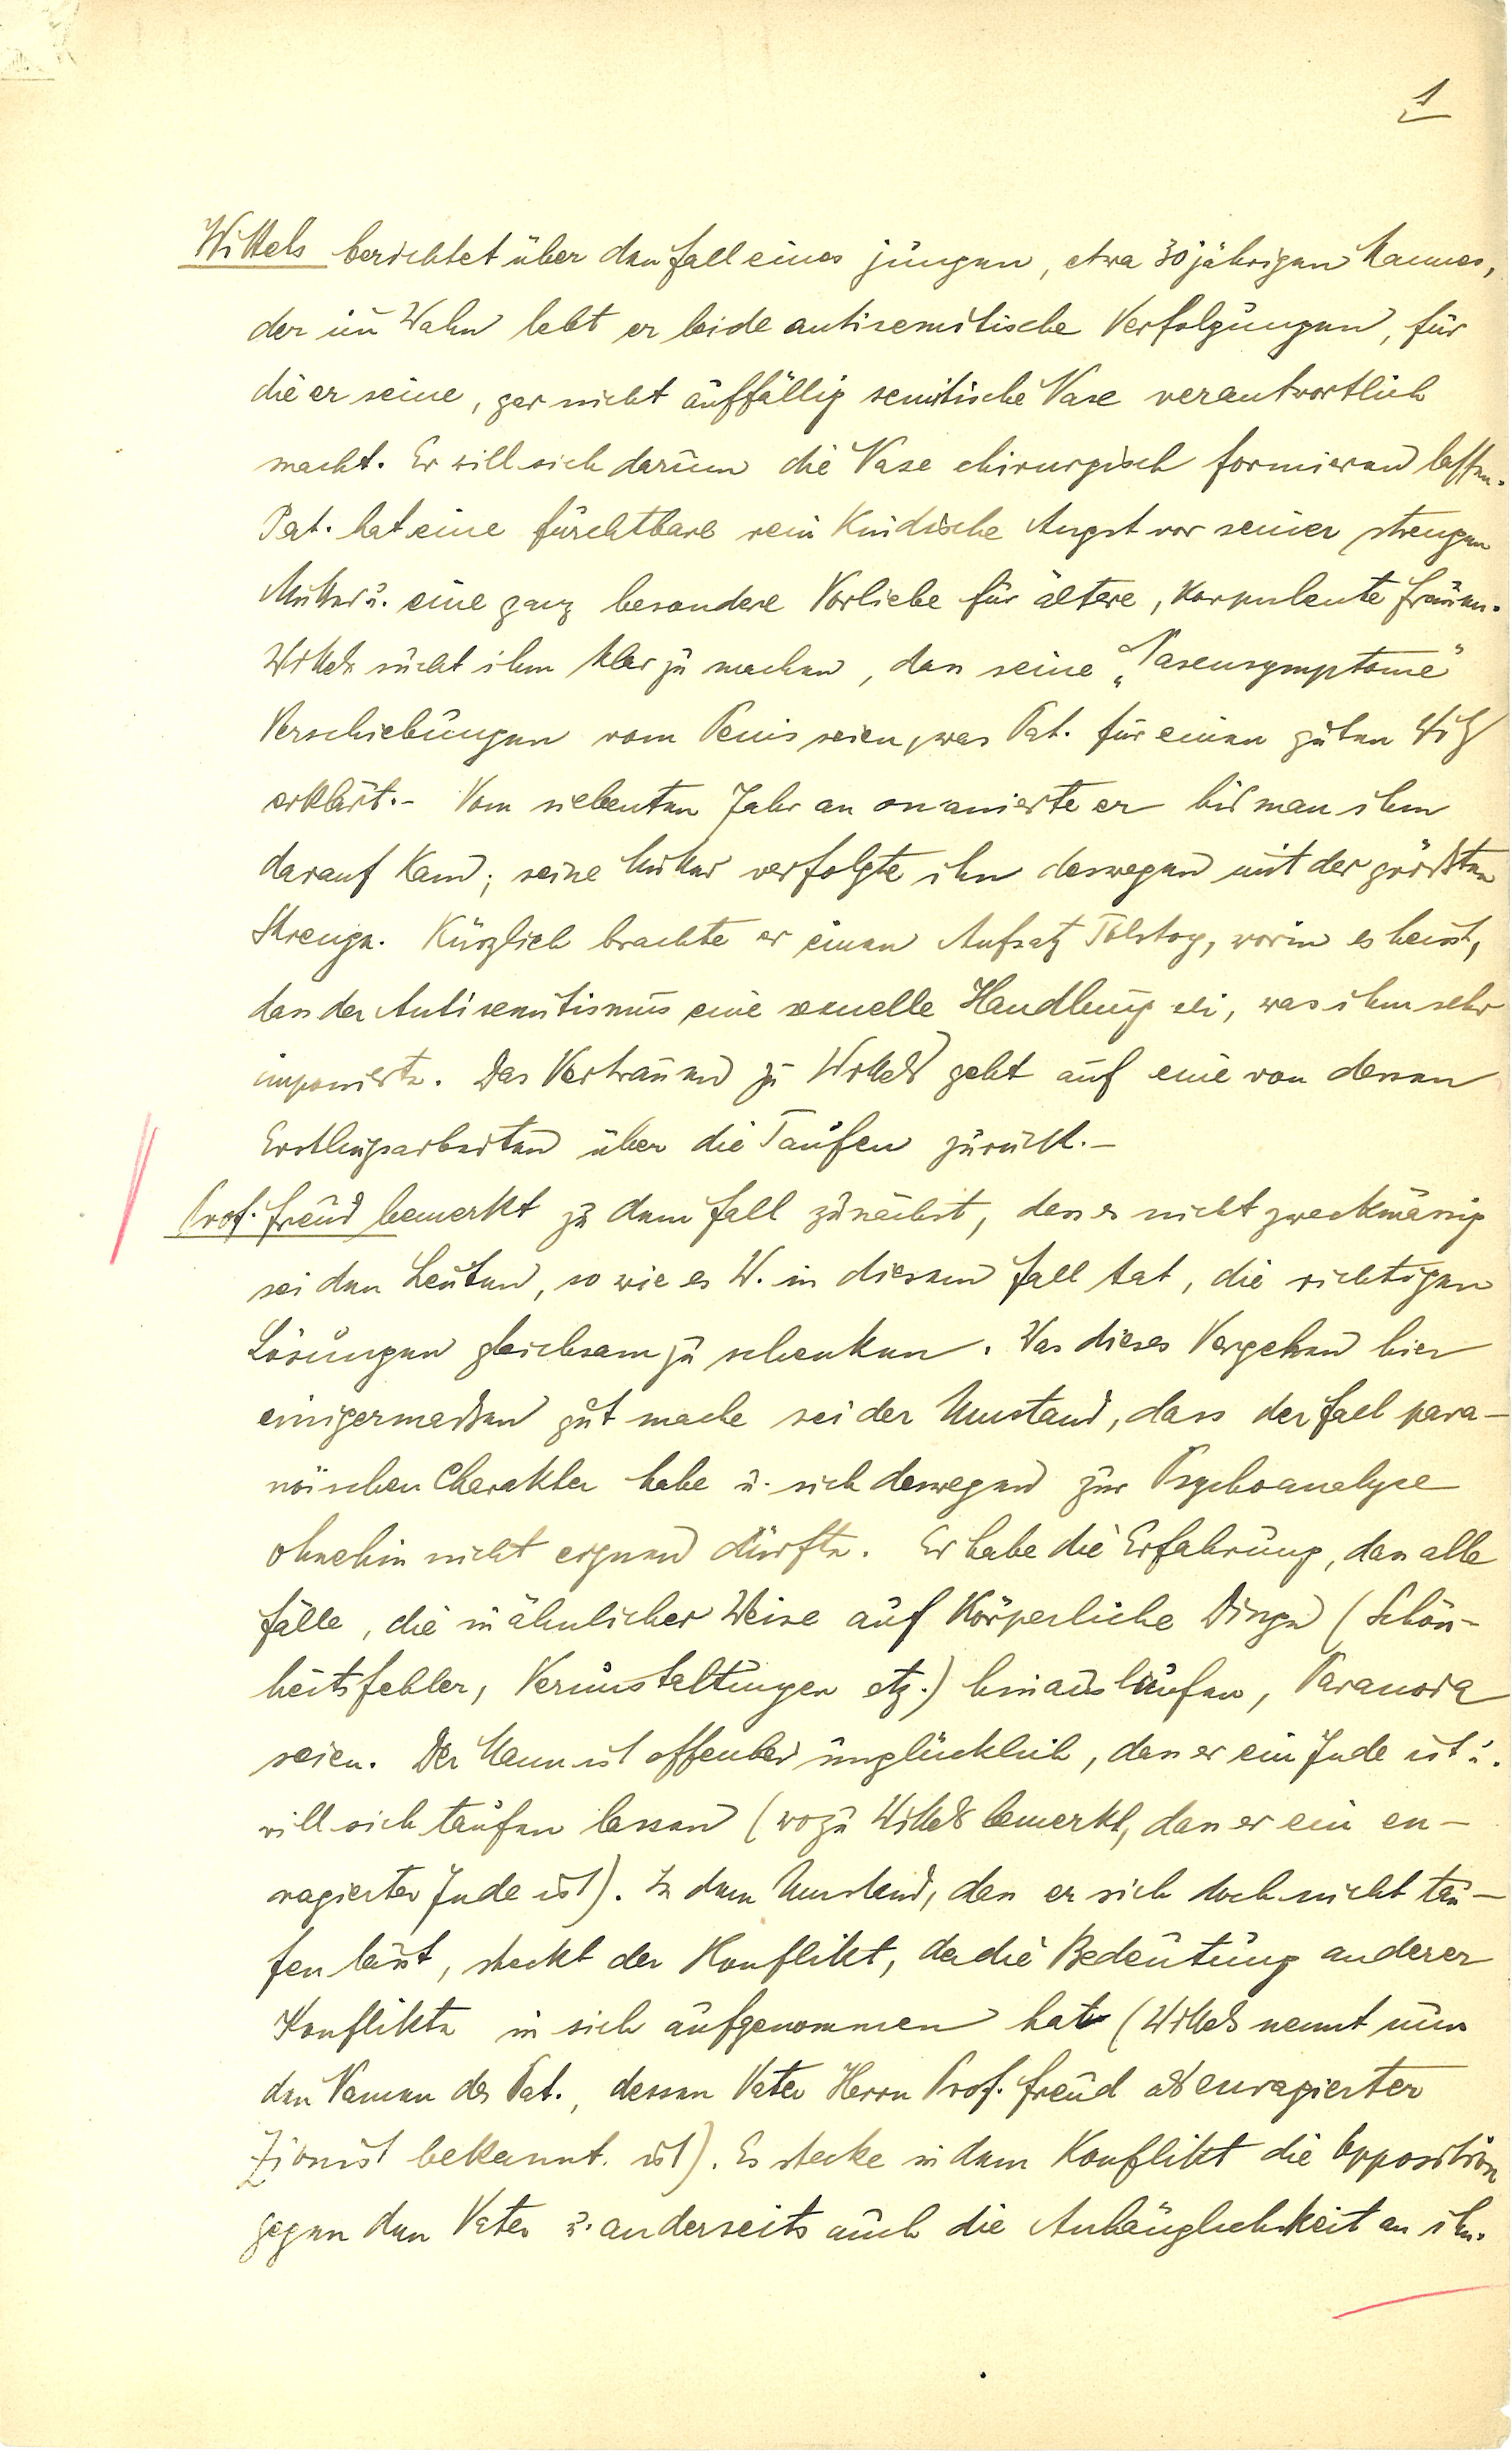 1
Wittels berichtet über den Fall eines jungen, etwa 30jährigen Mannes,
der im Wahn lebt er leide antisemitische Verfolgungen, für
die er seine, gar nicht auffällig semitische Nase verantwortlich
macht. Er will sich darum die Nase chirurgisch formieren lassen.
Pat. hat eine furchtbare rein kindische Angst vor seiner strengen
Mutter u. eine ganz besondere Vorliebe für ältere, korpulente Frauen.
Wittels sucht ihm klar zu machen, dass seine „Nasensymptome"
Verschiebungen vom Penis seien, was Pat. für einen guten Witz
erklärt.- Vom siebenten Jahr an onanierte er bis man ihm
darauf kam; seine Mutter verfolgte ihn deswegen mit der größten
Strenge. Kürzlich brachte er einen Aufsatz Tolstoy, worin es heisst,
dass der Antisemitismus eine sexuelle Handlung sei, was ihm sehr
imponierte. Das Vertrauen zu Wittels geht auf eine von dessen
Erstlingsarbeiten über die Taufen zurück.-
Prof. Freud bemerkt zu dem Fall zunächst, dass es nicht zweckmässig
sei den Leuten, so wie es W. in diesem Fall tat, die richtigen
Lösungen gleichsam zu schenken. Was dieses Vergehen hier
einigermaßen gut mache sei der Umstand, dass der Fall para-
noischen Charakter habe u. sich deswegen zur Psychoanalyse
ohnehin nicht eignen dürfte. Er habe die Erfahrung, dass alle
Fälle, die in ähnlicher Weise auf körperliche Dinge (Schön-
heitsfehler, Verunstaltungen etz.) hinauslaufen, Paranoia
seien. Der Mann ist offenbar unglücklich, dass er ein Jude ist u.
will sich taufen lassen (wozu Wittels bemerkt, dass er ein en-
ragierter Jude ist). In dem Umstand, dass er sich doch nicht tau-
fen lässt, steckt der Konflikt, der die Bedeutung anderer
Konflikte in sich aufgenommen hat (Wittels nennt nun
den Namen des Pat., dessen Vater Herrn Prof. Freud als enragierter
Zionist bekannt ist). Es stecke in dem Konflikt die Opposition
gegen den Vater u. anderseits auch die Anhänglichkeit an ihn.